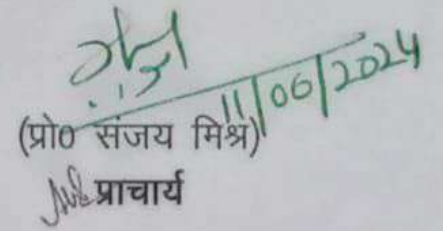 11/06/2024
(प्रो0 संजय मिश्र)
प्राचार्य